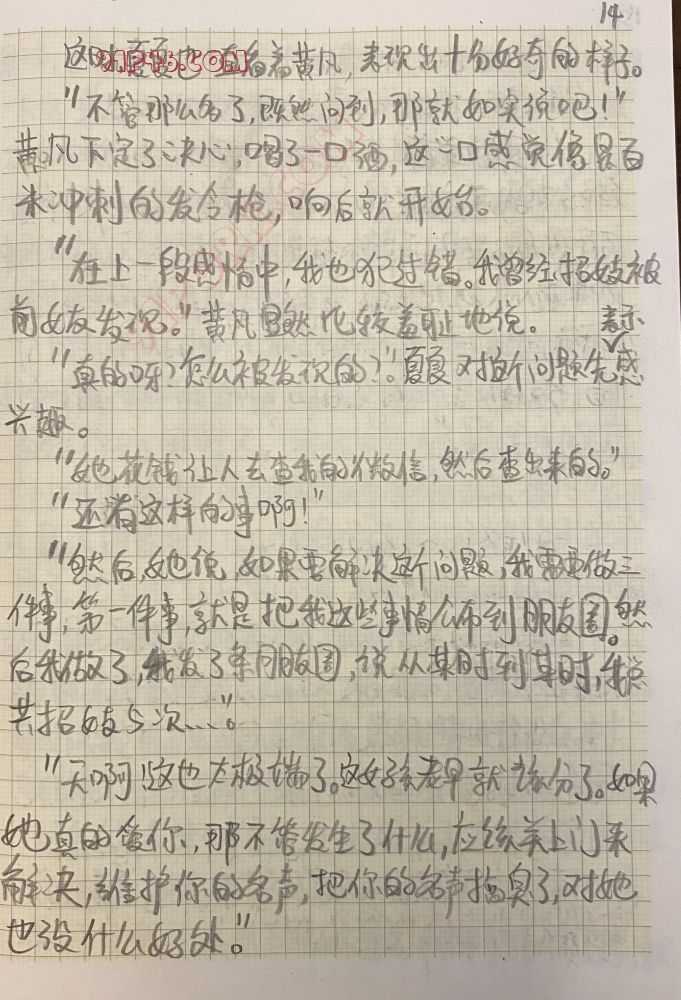 14
这时夏夏也一直看着黄风,表现出十分好奇的样子。
"不管那么多了,既然问到,那就如实说吧!"
黄风下定了决心,喝了一口酒,这一口感觉像是百
米冲刺的发令枪,响后就开始。
"在上一段感情中,我也犯过错。我曾经招妓被
前女友发现。"黄风显然比较羞耻地说。
表示
"真的呀?怎么被发现的?"。夏夏对这个问题先感
兴趣。
"她花钱让人去查我的微信,然后查出来的。"
"还有这样的事啊!"
"然后,她说,如果要解决这个问题,我需要做三
件事,第一件事,就是把我这些事情公布到朋友圈。然
后我做了,我发了条朋友圈,说从某时到某时,我总
共招妓5次...."。
"天啊!这也太极端了。这女孩老早就该分了。如果
她真的爱你,那不管发生了什么,应该关上门来
解决,维护你的名声,把你的名声搞臭了,对她
也没什么好处。"